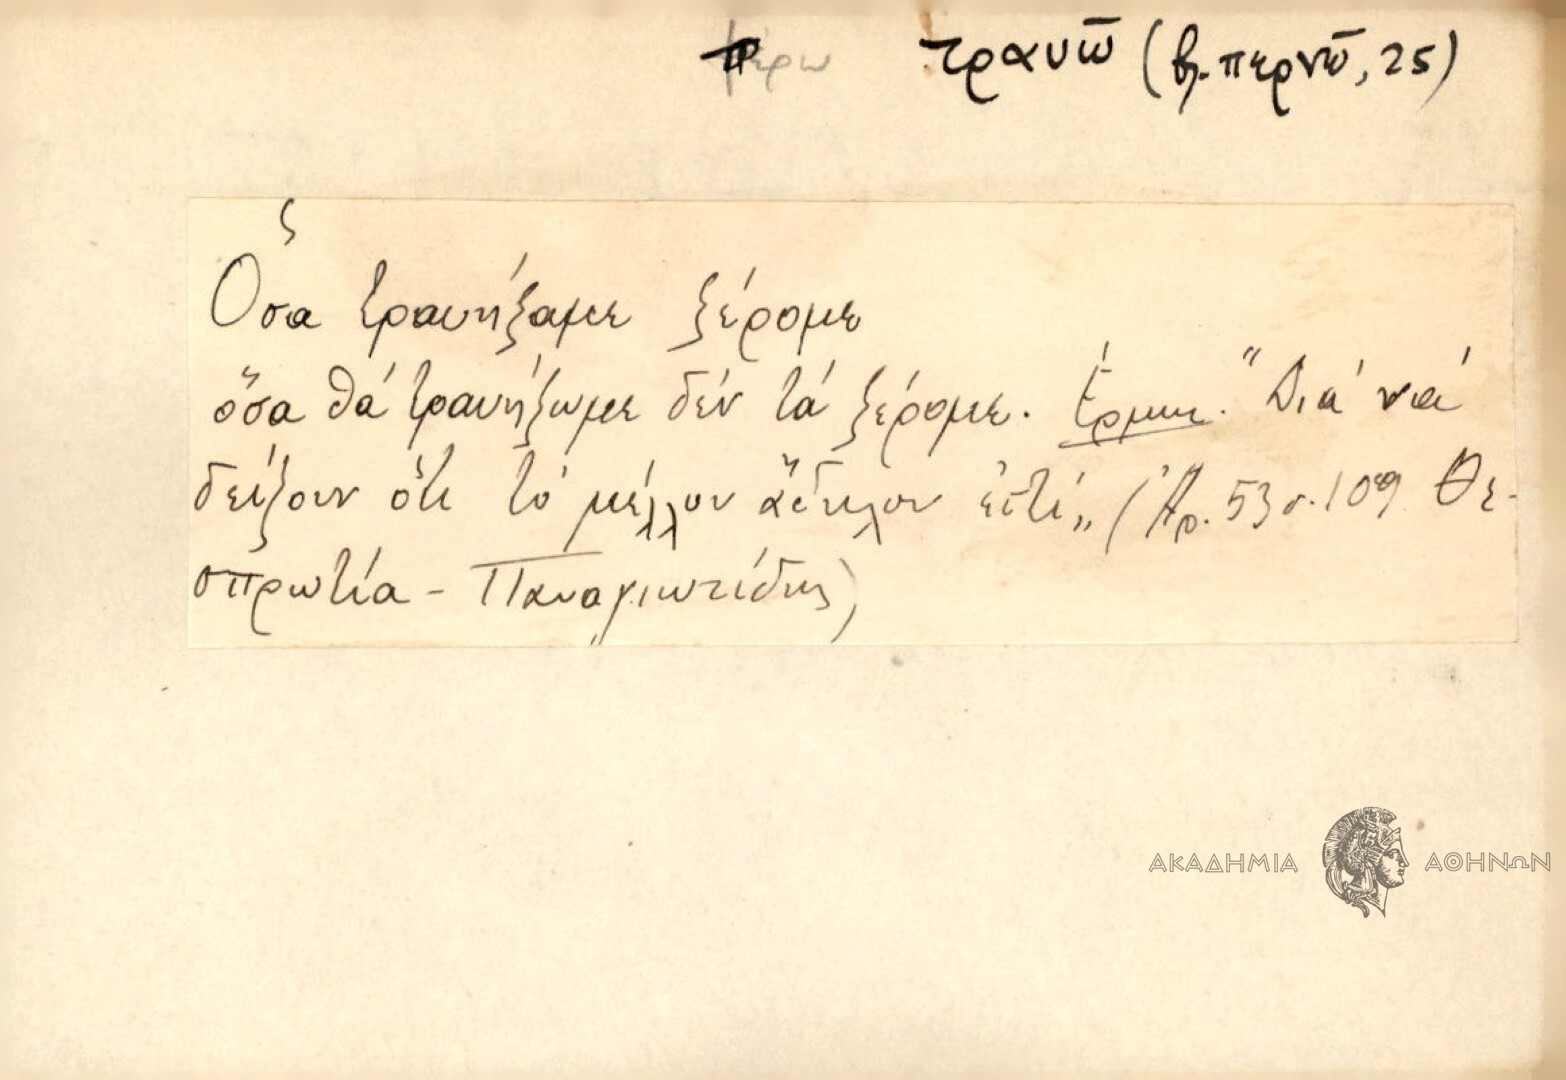 τραυῶ (βλ. περνῶ, 25)
Όσα τραυήξαμε ξέρομε
ὅσα θά τραυήξωμε δέν τά ξέρομε. Ἑρμην. "Διά νά
δείξουν ὅτι τό μέλλον ἄδηλον ἐστί„ (Ἀρ. 53 σ. 109 Θε-
σπρωτία - Παναγιωτίδης)
ΑΚΑΔΗΜΙΑ ΑΘΗΝΩΝ